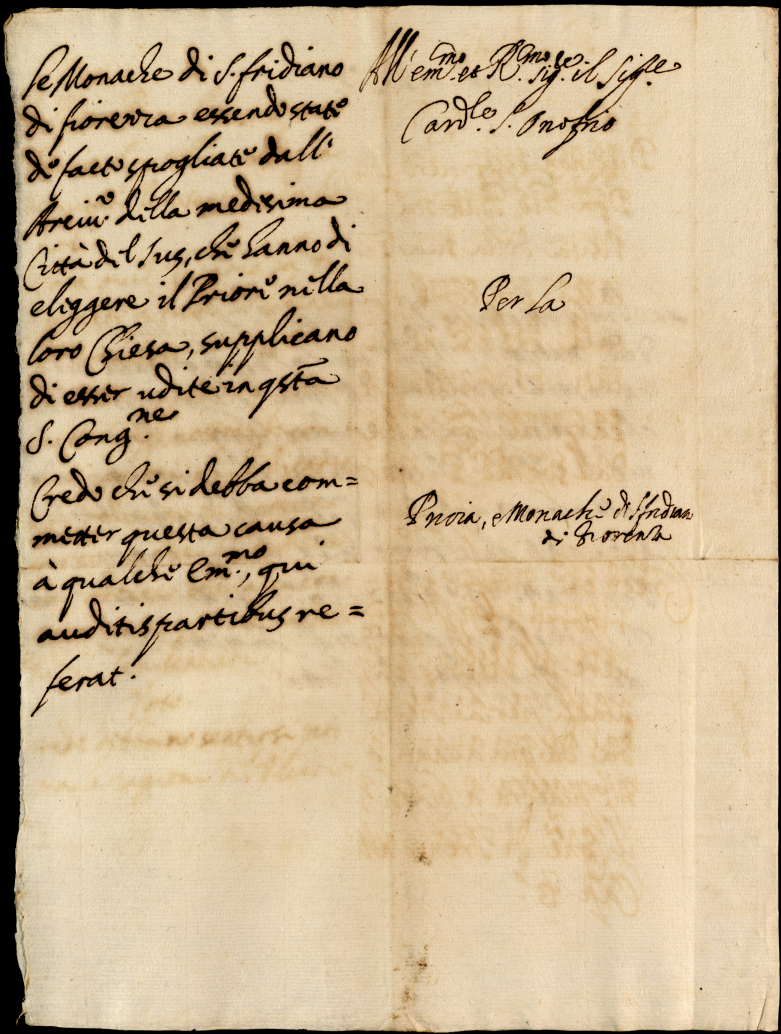 Le Monache di S. fridiano
di fiorenza essendo state
de facto spogliate dall'
Arciu.º della medesima
Città del Jus, che hanno di
eleggere il Priore nella
loro Chiesa, supplicano
di esser udite in qsta
S. Cong.ne
Credo che si debba com=
metter questa causa
à qualche Em.mo, qui
auditis partibus re=
ferat.
All' em.mo et R.mo Sig.re il Sig.re
Card.le S. Onofrio
Per La
Priora, e Monache di S fridian
di Fiorenza